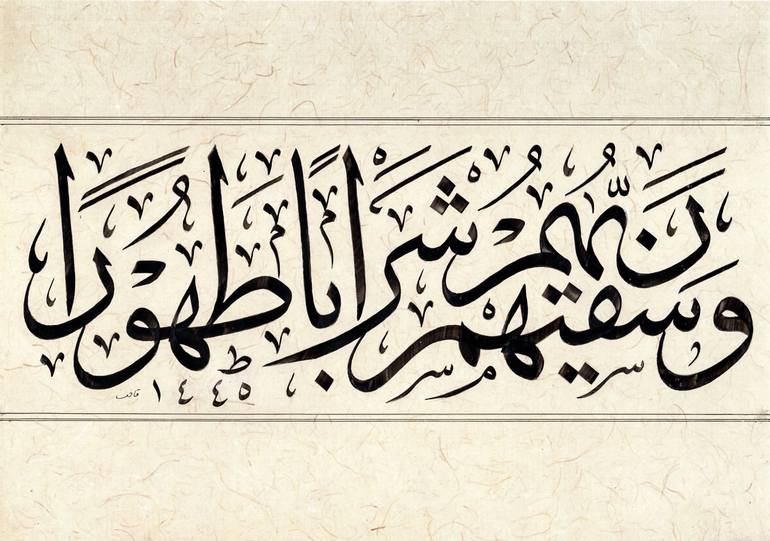 وَسَقٰىهُمْ رَبُّهُمْ شَرَابًا طَهُورًا
١٤٤٥